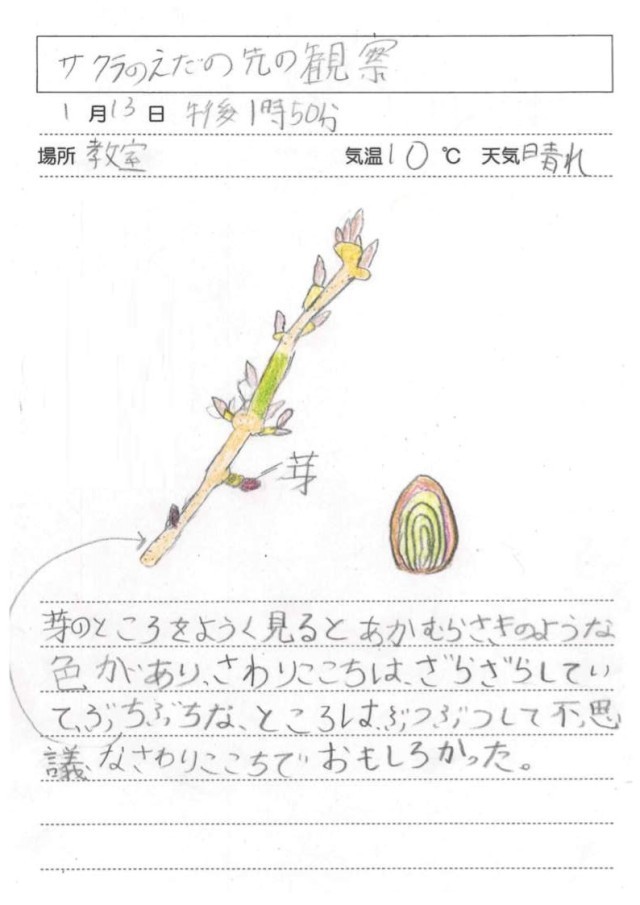 サクラのえだの先の観察
1月13日 午後1時50分
場所 教室 気温10℃ 天気晴れ
芽
芽のところをようく見るとあかむらさきのような
色があり、さわりここちは、ざらざらしてい
て、ぶちぶちな、ところは、ぶつぶつして不思
議、なさわりここちでおもしろかった。